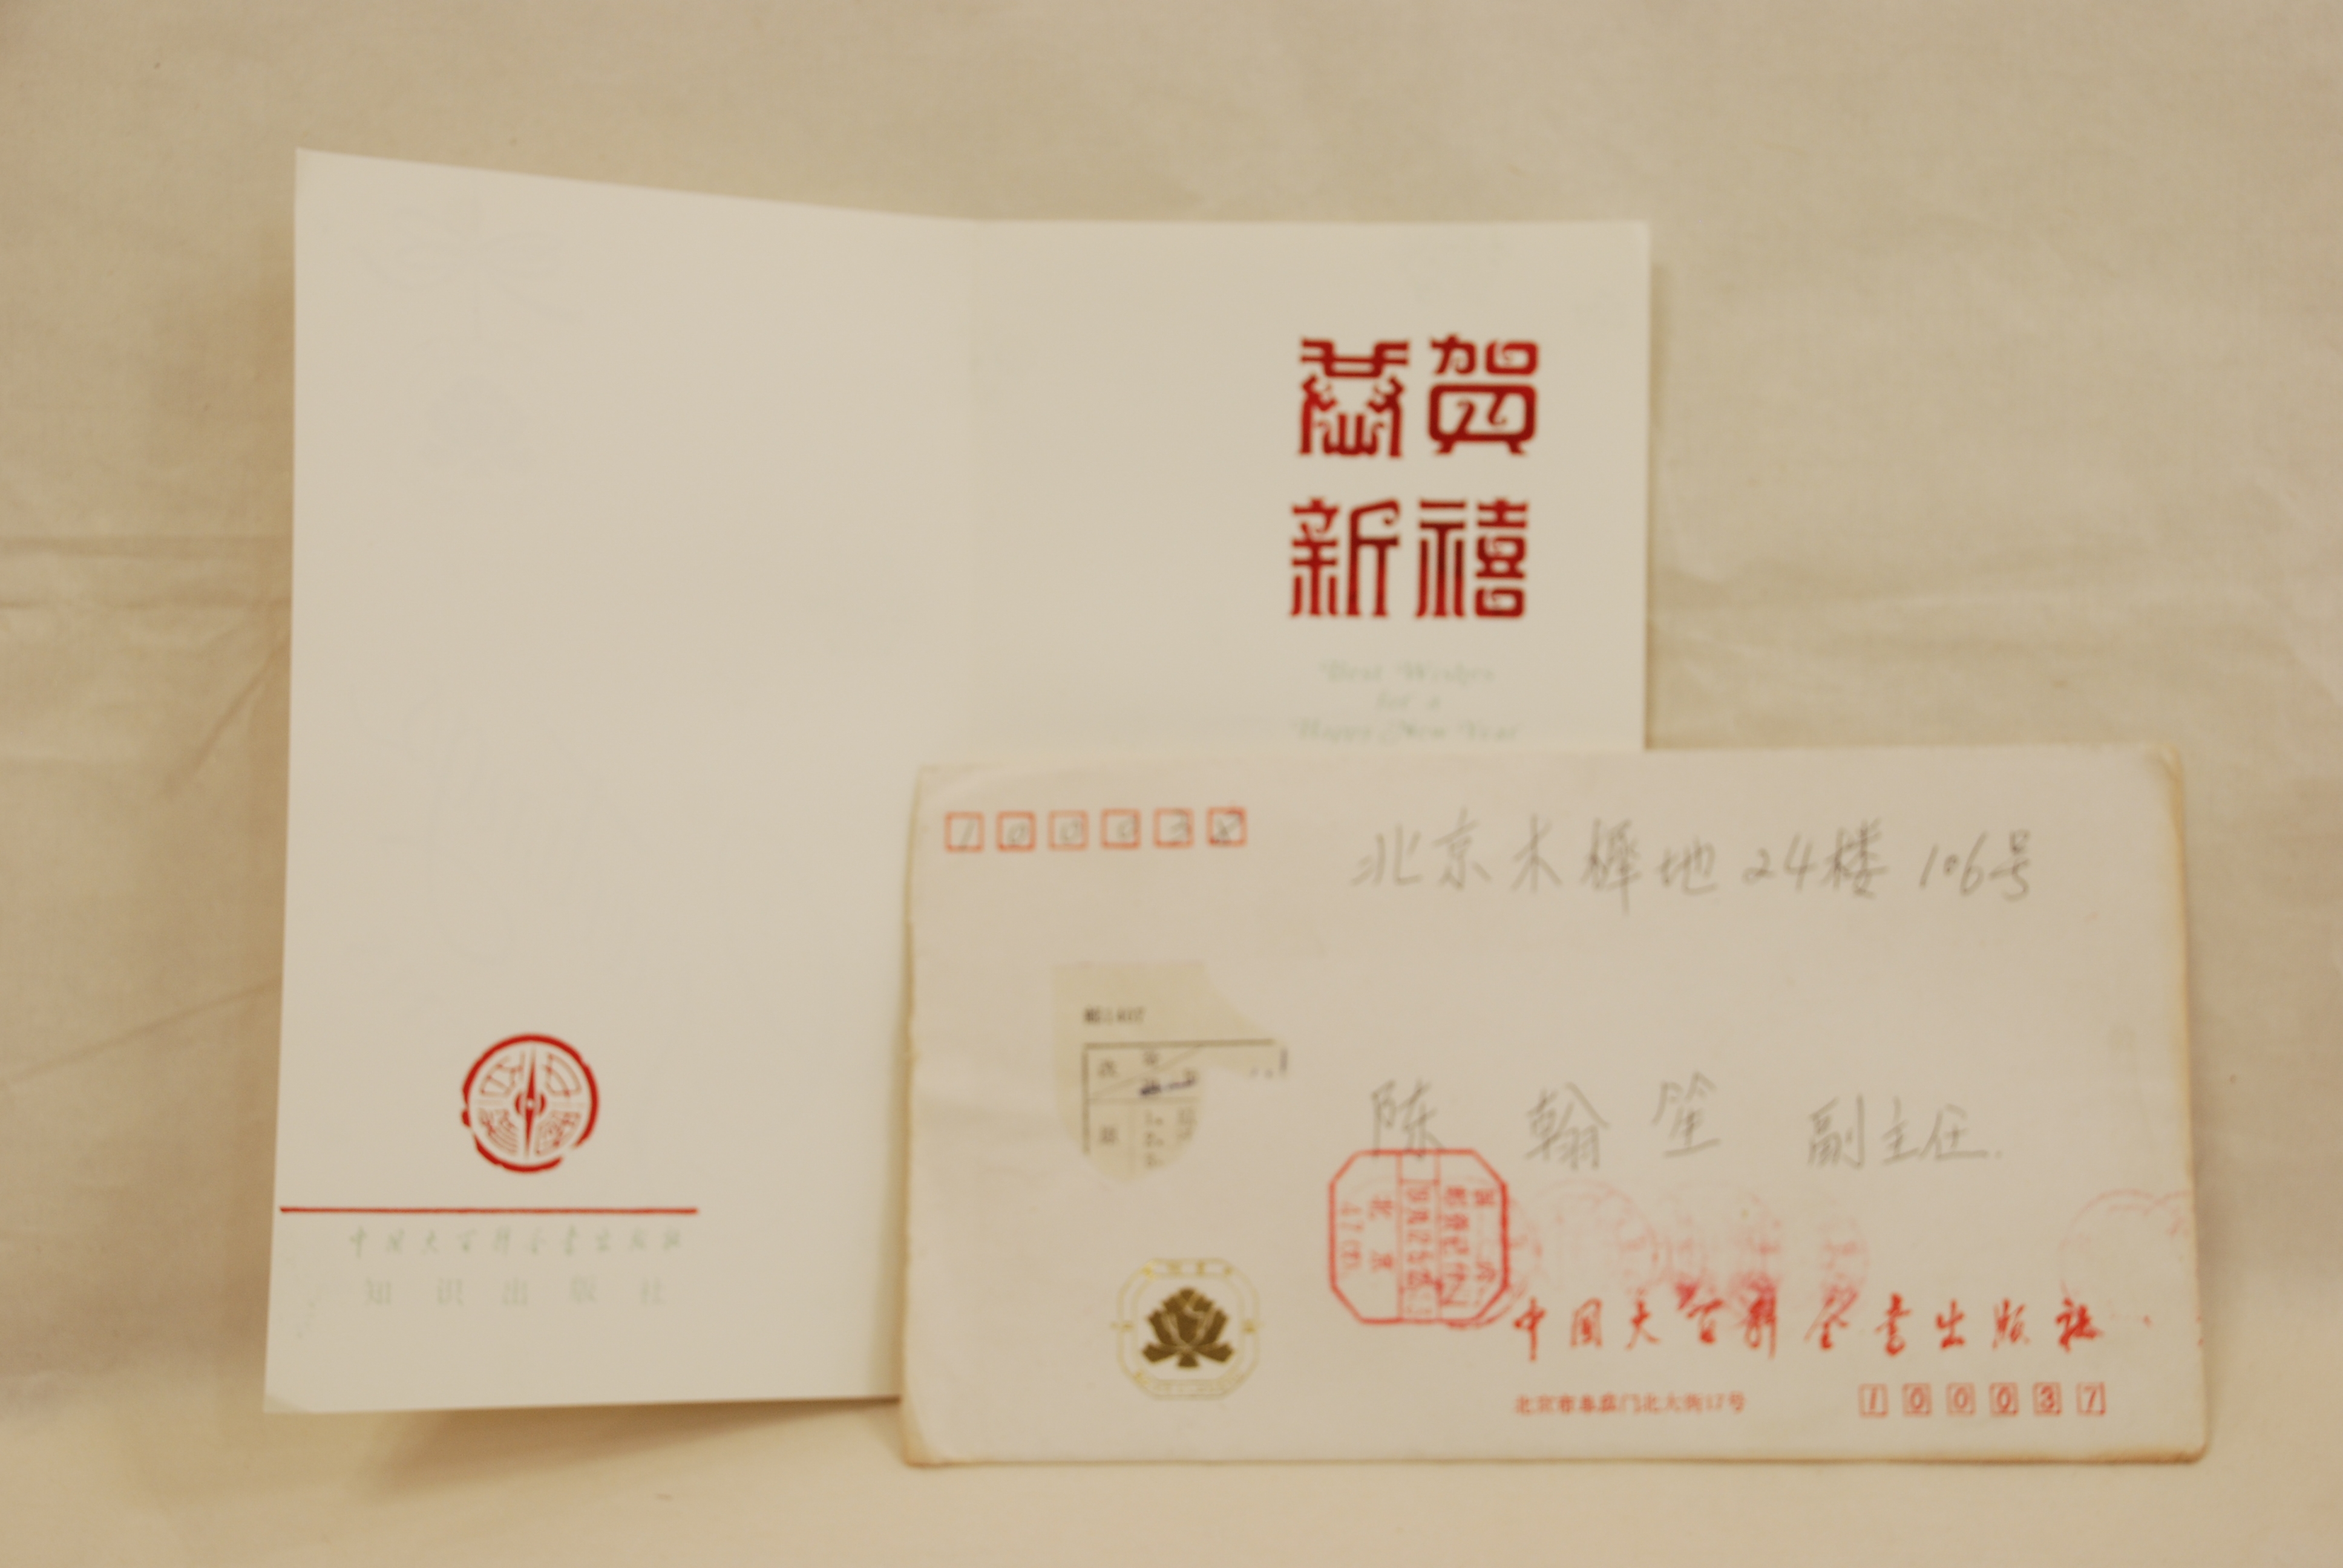 恭贺
新禧
Best Wishes
for a
Happy New Year
中国大百科全书出版社
知识出版社
北京木樨地24楼106号
陈翰笙 副主任.
北京
中国大百科全书出版社
北京市阜成门北大街17号
100037